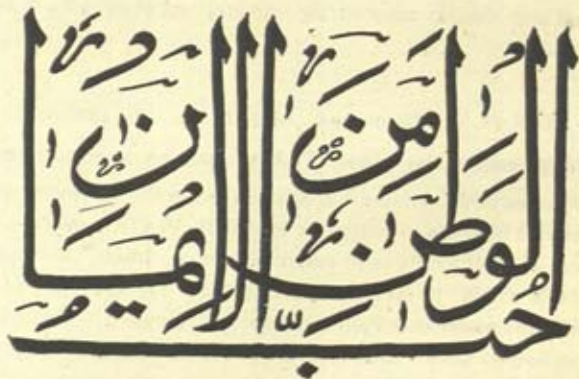 حُبُّ الوَطَنِ مِنَ الإيمَان